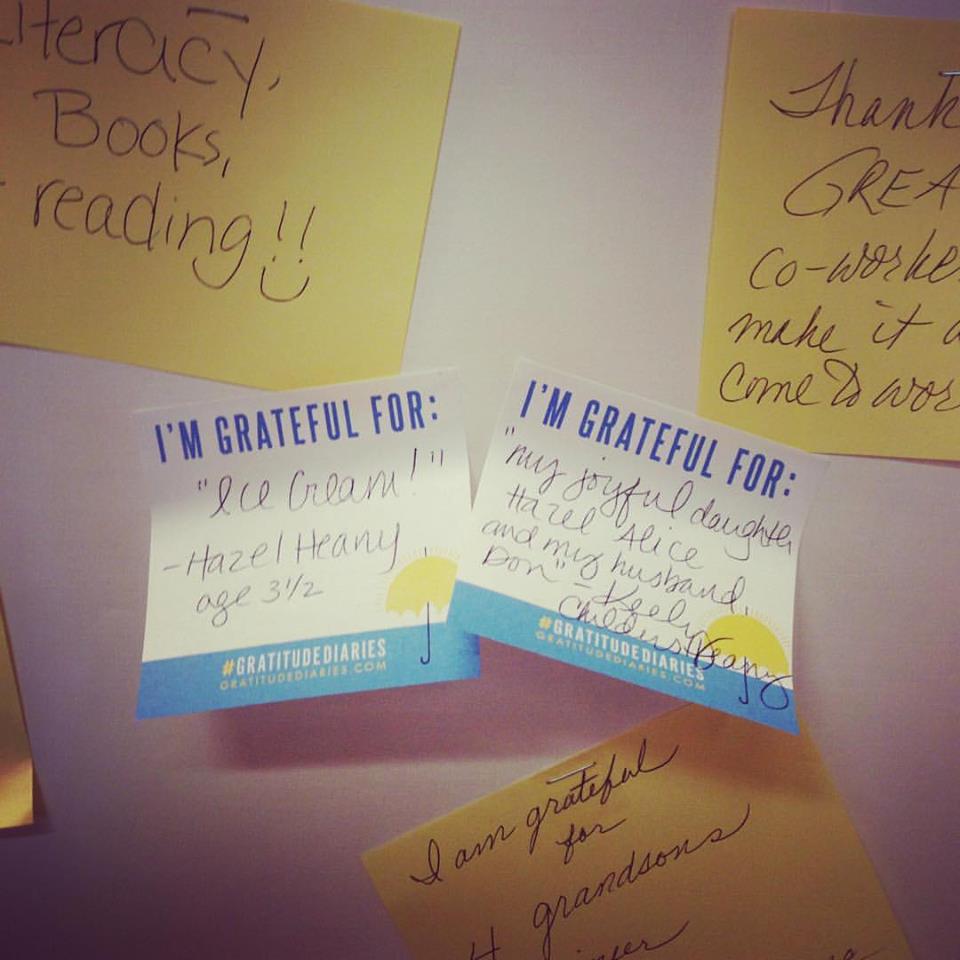 Literacy,
Books,
reading!!
Thank
GREA
co-worke
make it a
come to wor
I'M GRATEFUL FOR:
"Ice Cream!"
-Hazel Heany
age 3 1/2
#GRATITUDEDIARIES
GRATITUDEDIARIES.COM
I'M GRATEFUL FOR:
"my joyful daughter
Hazel Alice
and my husband
Don" - Keely
Childers Heany
#GRATITUDEDIARIES
GRATITUDEDIARIES.COM
I am grateful
for
4 grandsons